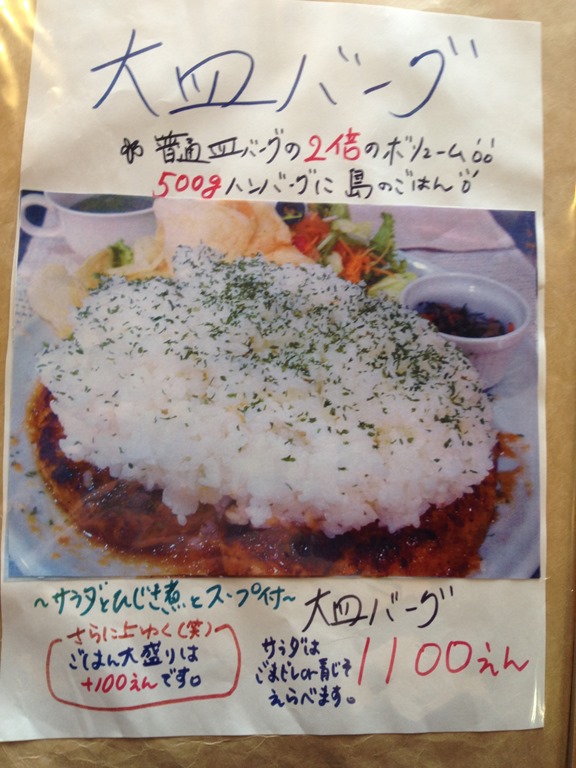 大皿バーグ
普通皿バーグの2倍のボリューム
500gハンバーグに島のごはん
〜サラダとひじき煮とスープ付〜
大皿バーグ
1100えん
サラダは
ごまドレor青じそ
えらべます。
さらに上ゆく(笑)
ごはん大盛りは
+100えんです。